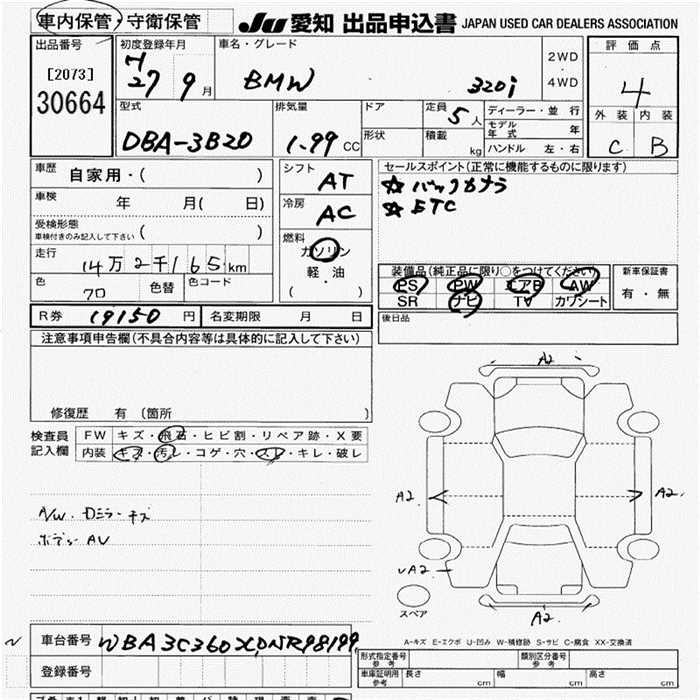 車内保管・守衛保管
JU 愛知 出品申込書 JAPAN USED CAR DEALERS ASSOCIATION
出品番号
[2073]
30664
初度登録年月
H
27 9 月
車名・グレード
BMW 320i
2WD
・
4WD
評価点
4
外装 内装
C B
型式
DBA-3B20
排気量
1.99 CC
ドア
形状
定員 5 人
積載 kg
ディーラー・並行
モデル年式 年
ハンドル 左・右
車歴 自家用・( )
車検 年 月( 日)
受検形態
車検付きのみ記入して下さい ( )
走行
14万2千165km
色 クロ 色替 色コード
シフト
AT
冷房
AC
燃料
ガソリン
軽・油
( ・ )
セールスポイント(正常に機能するものに限ります)
☆バックカメラ
☆ETC
装備品(純正品に限り○をつけてください)
PS PW エアB AW
SR ナビ TV カワシート
新車保証書
有・無
R券 19150 円 名変期限 月 日
後日品
注意事項申告欄(不具合内容等は具体的に記入して下さい)
修復歴 有 〔箇所 〕
検査員記入欄
FW キズ・飛石・ヒビ割・リペア跡・X要
内装 キズ・汚レ・コゲ・穴・スレ・キレ・破レ
A/W. Dミラーキズ
ボデーAU
A2
A2 A2.
A2
A2.
スペア
A-キズ E-エクボ U-凹み W-補修跡 S-サビ C-腐食 XX-交換済
車台番号 WBA3C360X0NR98199
登録番号
形式指定番号 参考
類別区分番号 参考
車庫証明用 参考 長さ cm 幅 cm 高さ cm